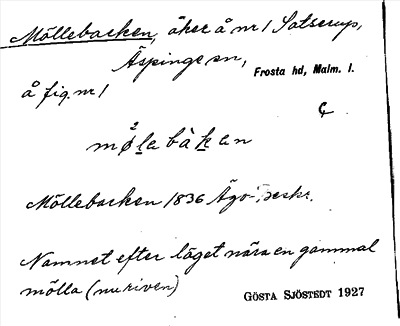 Möllebacken, åker å nr 1 Satserup,
Äspinge sn,
Frosta hd, Malm. l.
å fig. nr 1
mø̀lebàkan
Möllebacken 1836 Ägo-beskr.
Namnet efter läget nära en gammal
mölla (nu riven)
GÖSTA SJÖSTEDT 1927